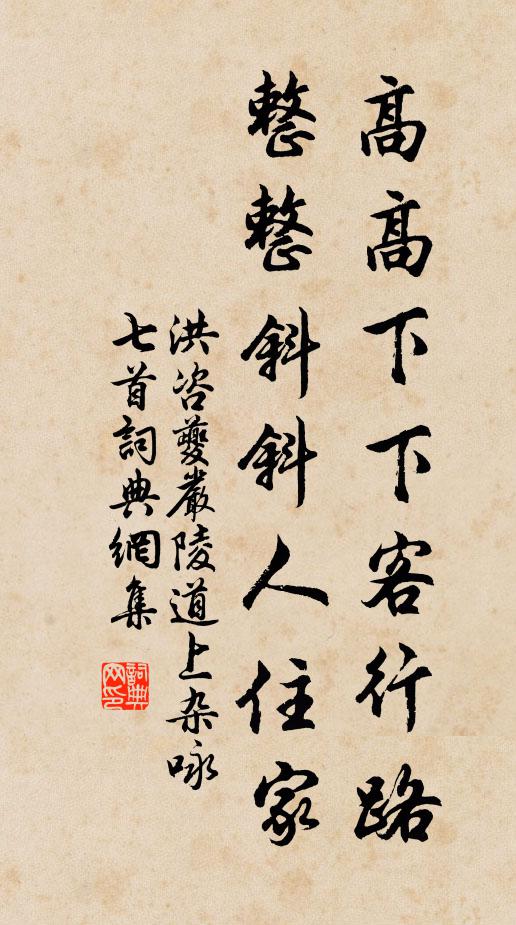 高高下下客行路
整整斜斜人住家
洪咨夔嚴陵道上杂咏
七首詞典網集
詞典
网印